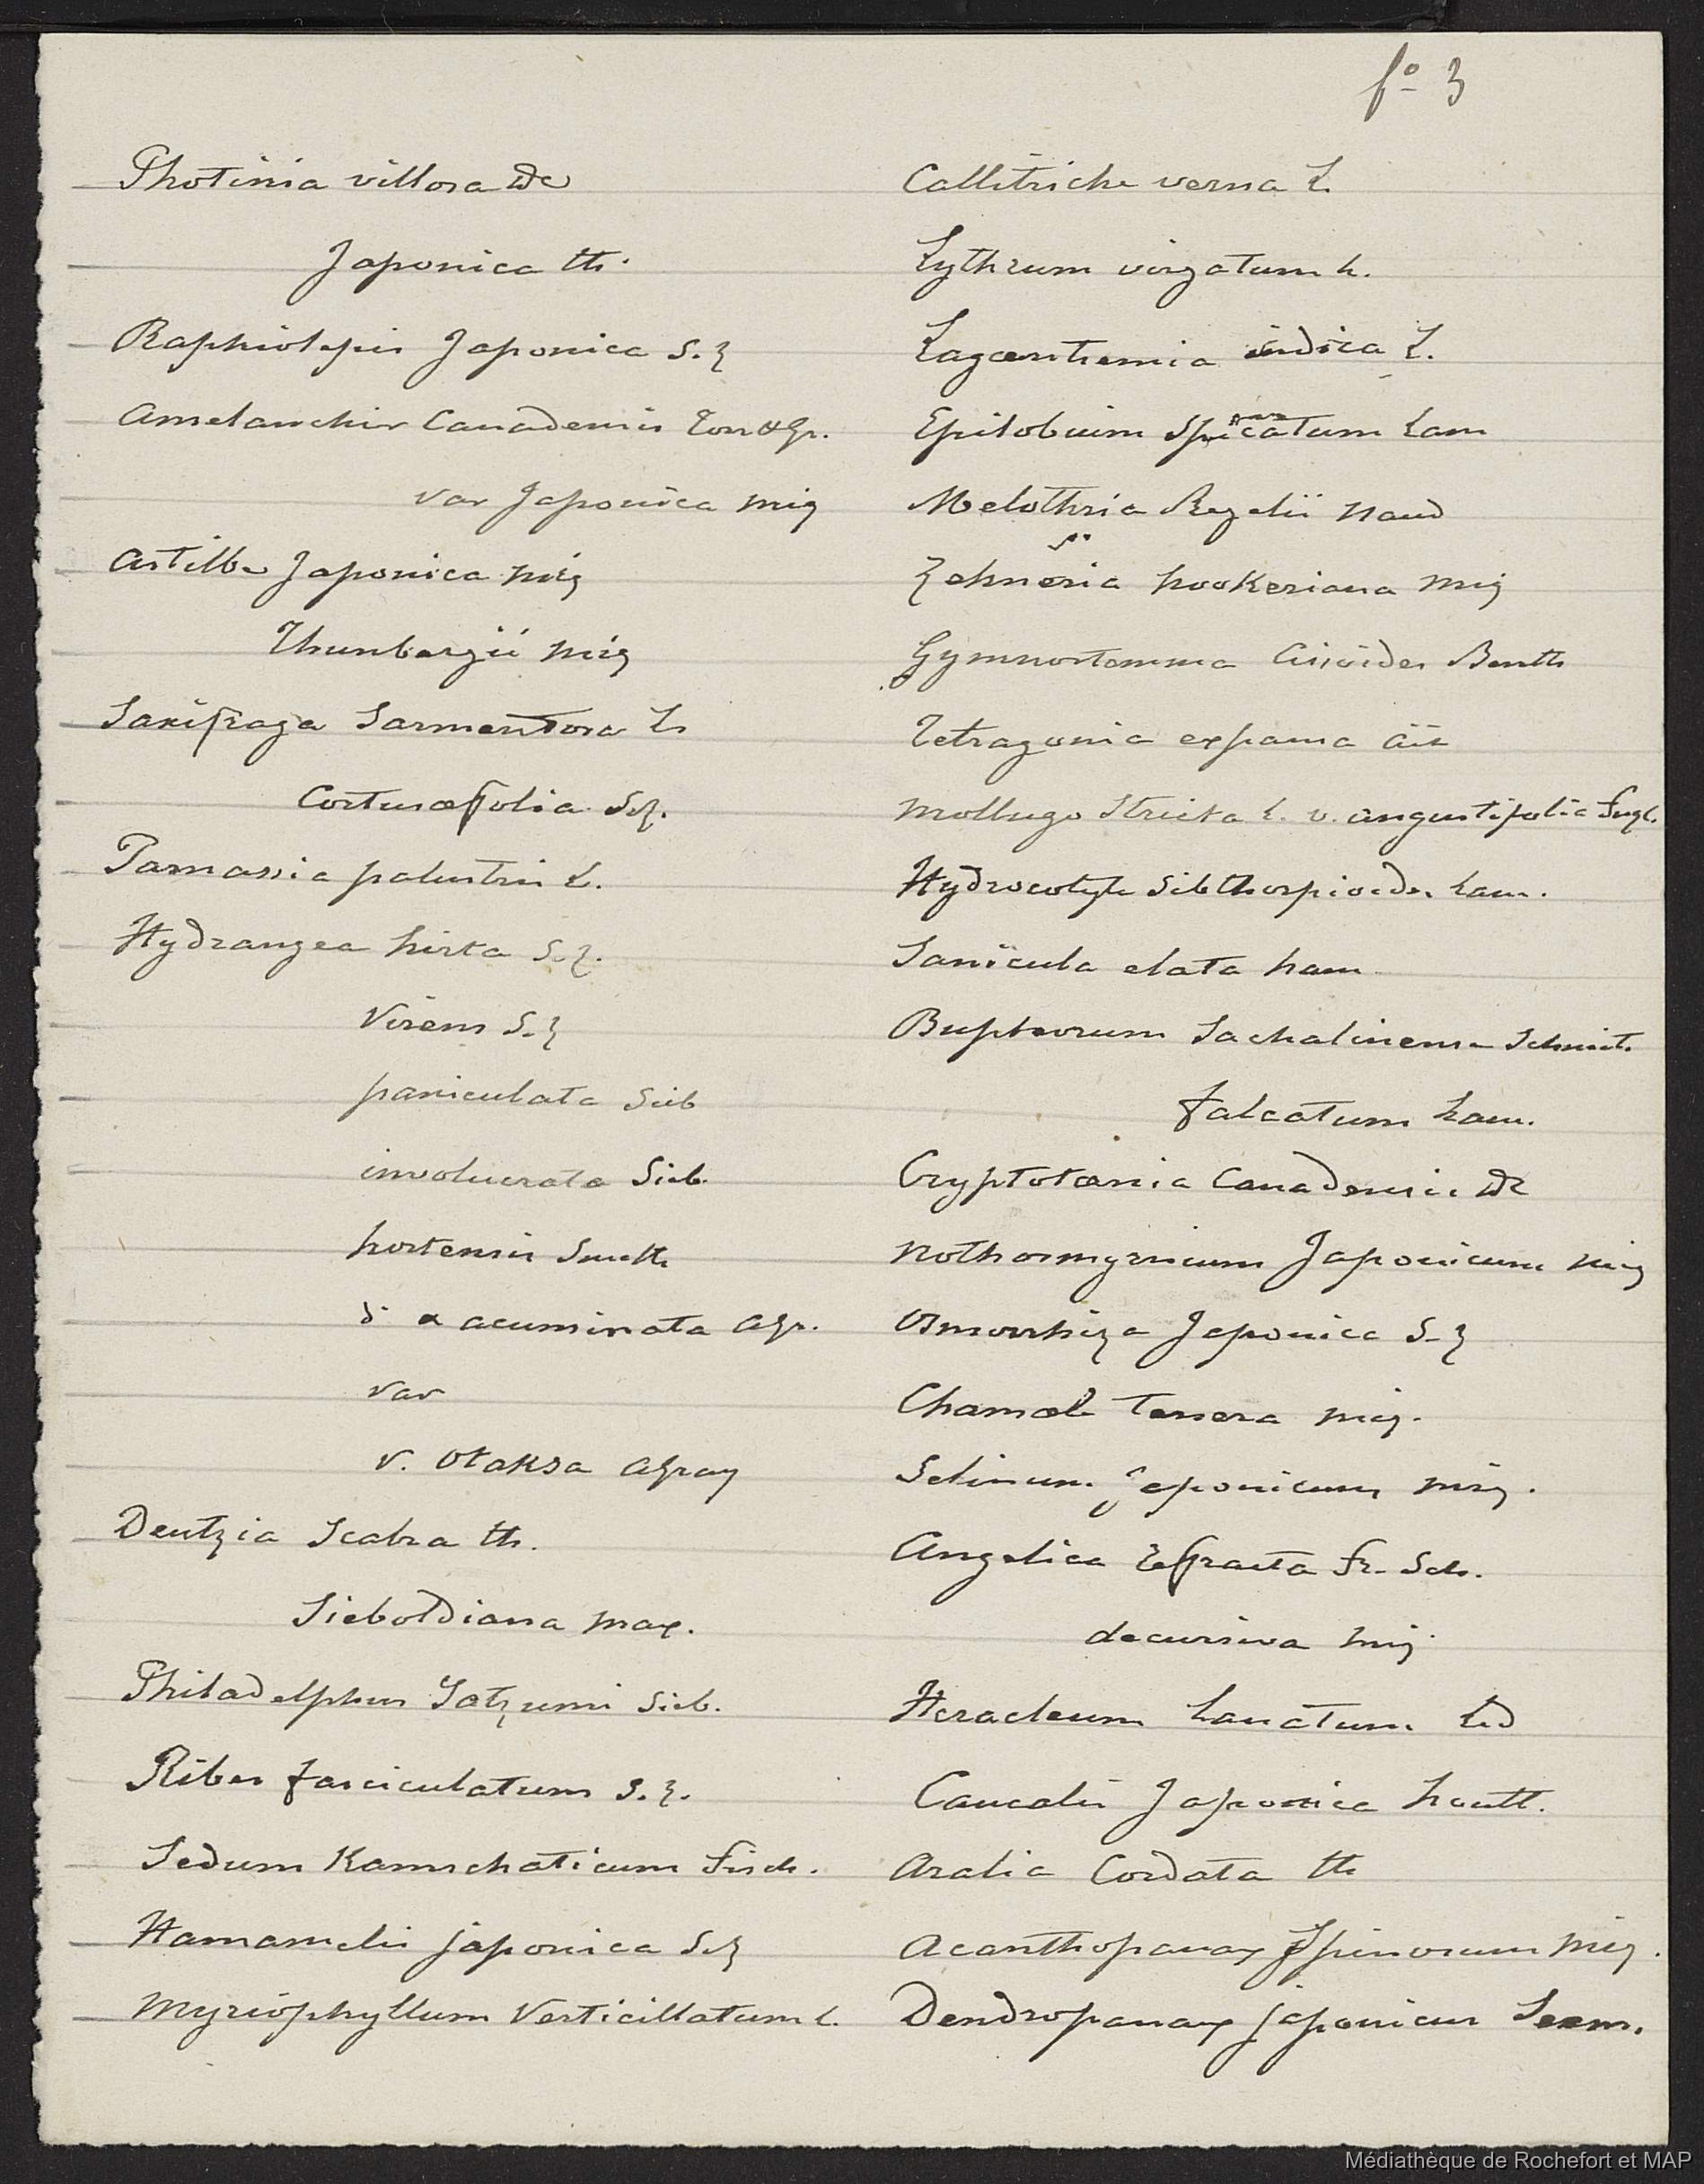 fo 3
Photinia villosa DC
Japonica th.
Raphiolepis Japonica S.Z
Amelanchier Canadensis Torr & Gr.
var Japonica Miq
Astilbe Japonica Miq
Thunbergii Miq
Saxifraga Sarmentosa L
Cortusæfolia S.Z.
Parnassia palustris L.
Hydrangea hirta S.Z.
Virens S.Z
paniculata Sieb
involucrata Sieb.
hortensis Smith
d. α acuminata AGr.
var
v. Otaksa AGray
Deutzia Scabra th.
Sieboldiana Max.
Philadelphus Satzumi Sieb.
Ribes fasciculatum S.Z.
Sedum Kamschaticum Fisch.
Hamamelis japonica S.Z
Myriophyllum Verticillatum L.
Callitriche verna L.
Lythrum virgatum L.
Lagerstremia indica L.
Epilobium spicatum Lam
Melothria Regelii Naud
Zehneria hookeriana Miq
Gymnostemma Cissoides Benth
Tetragonia expansa Ait
Mollugo Stricta L. v. angustifolia
Hydrocotyle Sibthorpioides Lam.
Sanicula elata ham
Bupleurum Sachalinense Schmit.
falcatum Lam.
Cryptotænia Canadensis DC
Nothosmyrnium Japonicum Miq
Osmorrhiza Japonica S.Z
Chamæle Tenera Miq.
Selinum japonicum Miq.
Angelica Refracta Fr. Sch.
decursiva Miq.
Heracleum Lanatum
Caucalis Japonica houtt.
Aralia Cordata th
Acanthopanax Spinosum Miq.
Dendropanax japonicus Seem.
Médiathèque de Rochefort et MAP